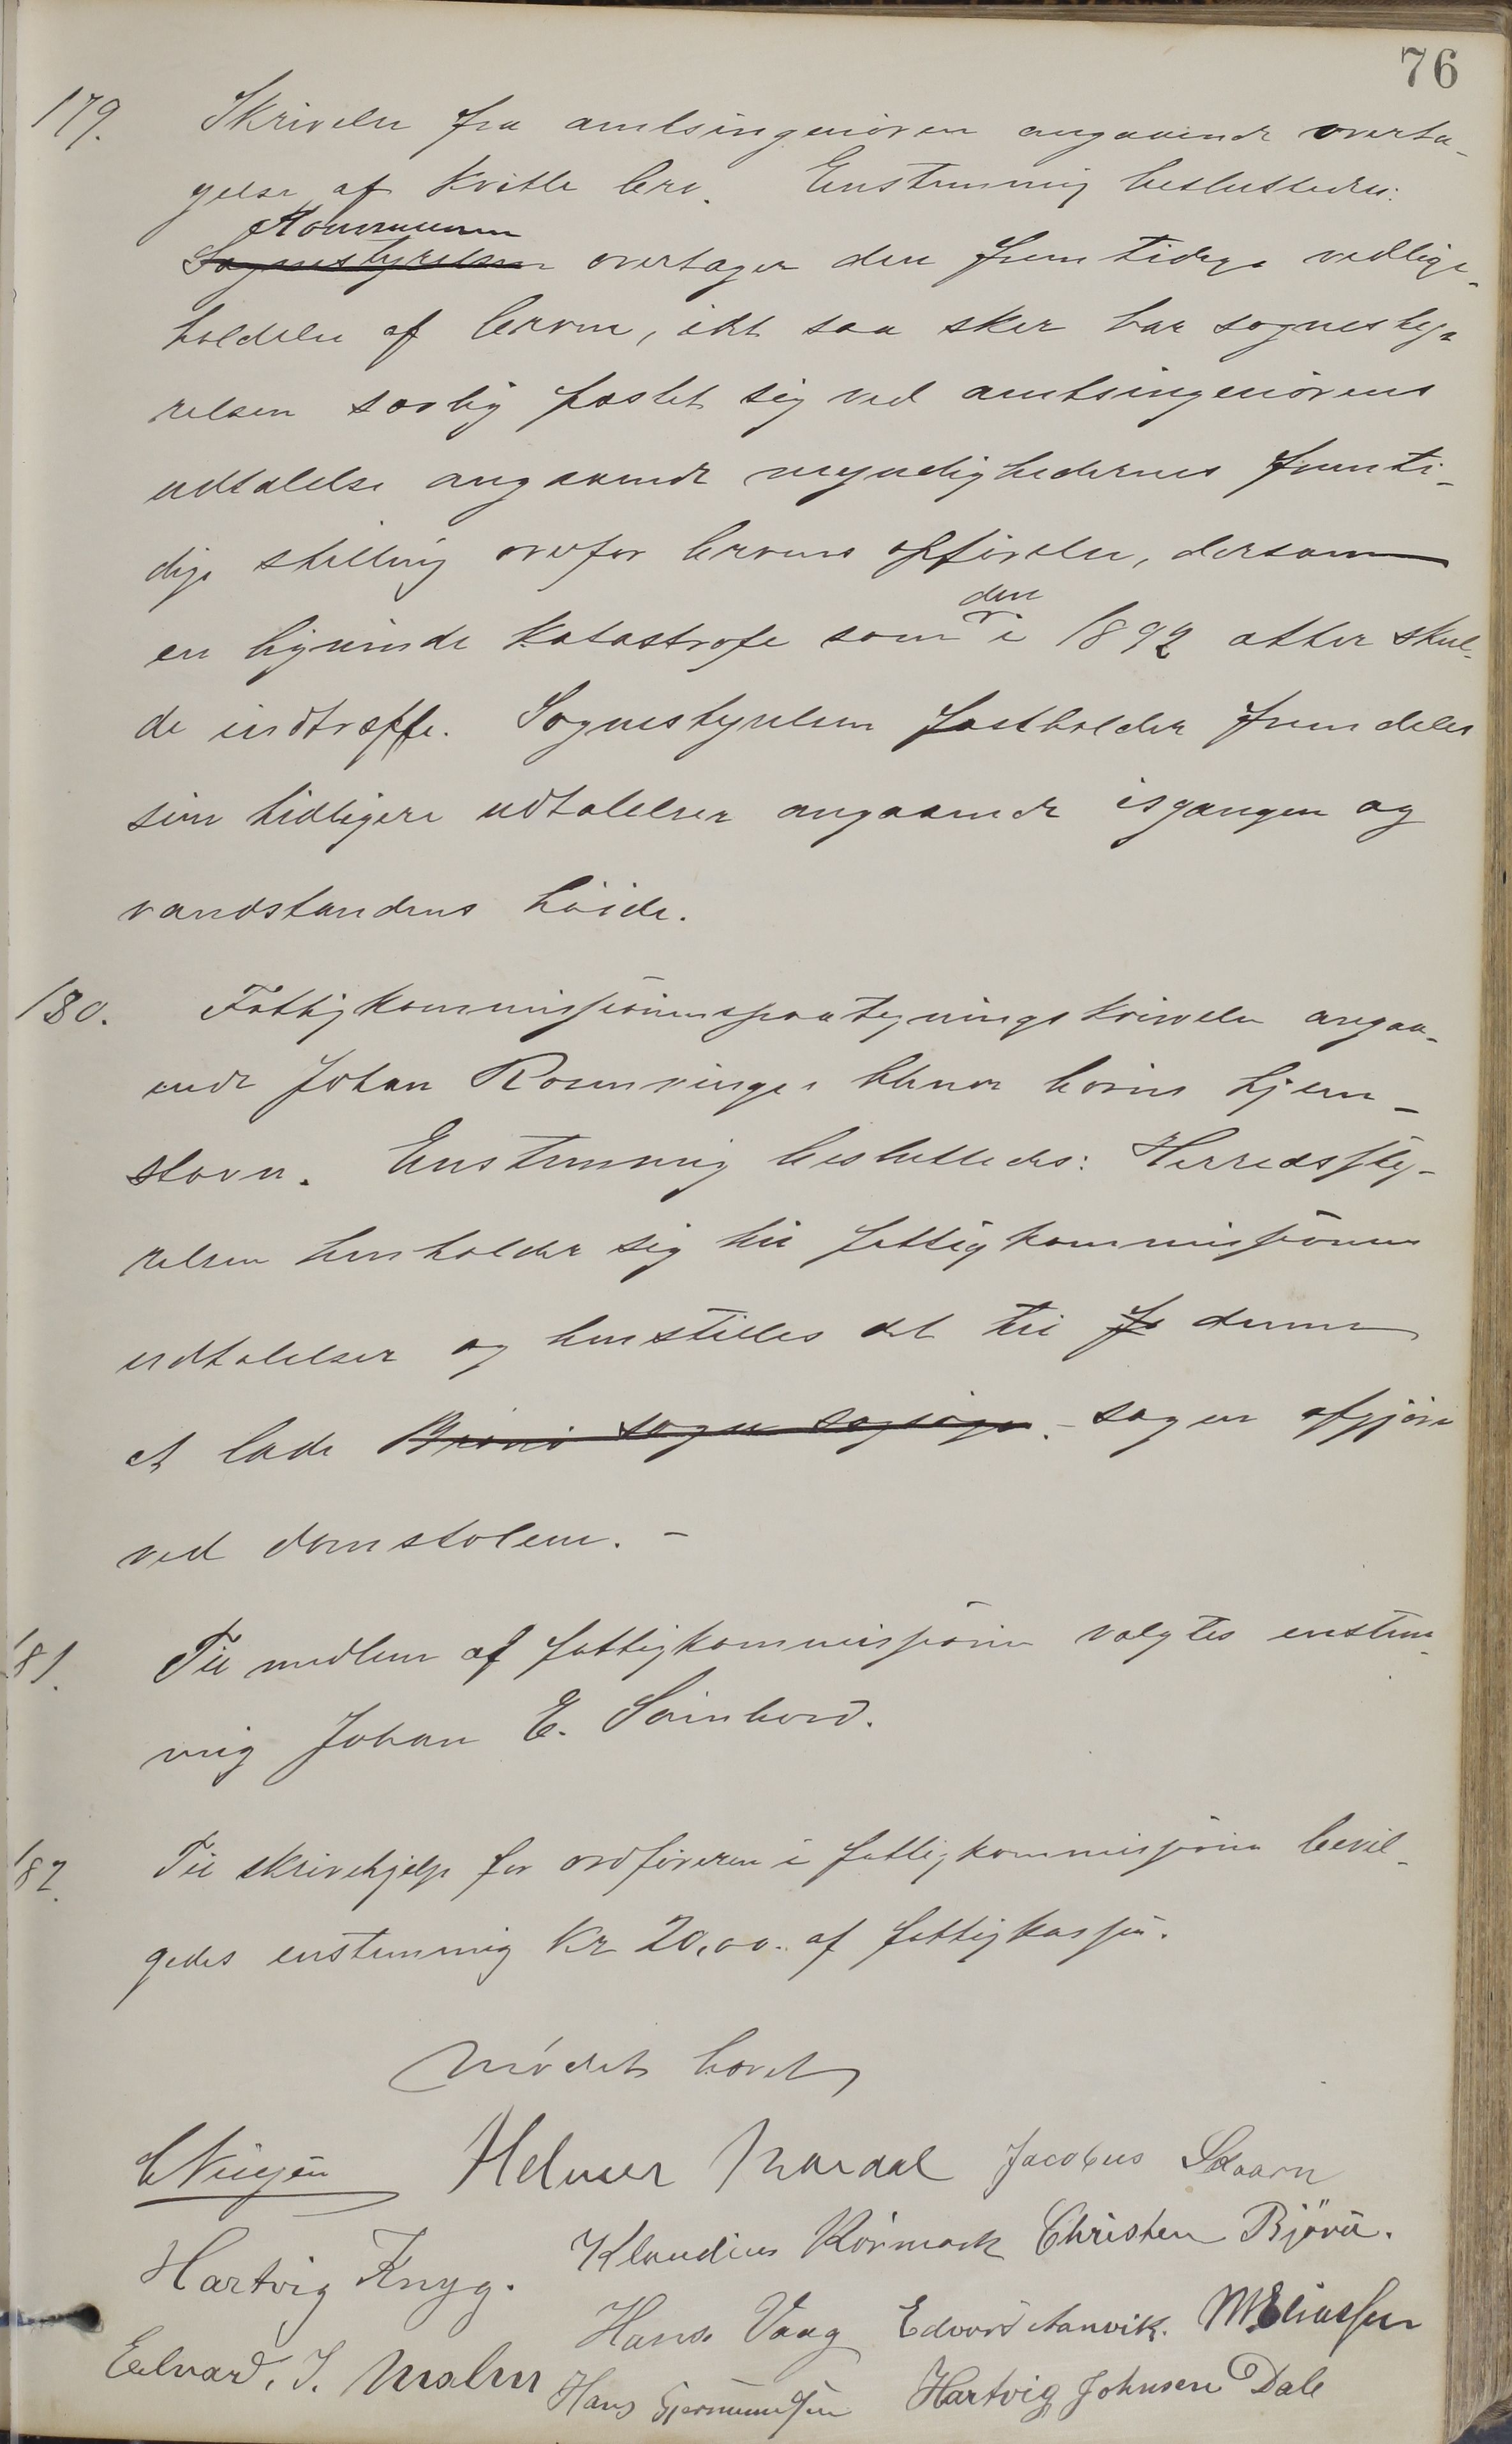 76
179. Skrivelse fra amtsingeniøren angaaende overta-
gelse af Kvitle bro. Enstemmig besluttedes:
Kommunen
Sognestyrelsen overtager den fremtidige vedlige-
holdelse af broen, idet saa sker har sognesty-
relsen særlig fæstet sig ved amtsingeniørens
udtalelse angaaende myndighedernes fremti-
dige stilling overfor broens opførelse, dersom
den
en lignende katastrofe som i 1892 atter skul-
de indtræffe. Sognestyrelsen fastholder fremdeles
sine tidligere udtalelser angaaende isgangen og
vandstandens høide.
180. Fattigkommissionens paategningsskrivelse angaa-
ende Johan Rosenvinges børns hjem-
stavn. Enstemmig besluttedes: Herredssty-
relsen henholder sig til fattigkommissionens
udtalelser og henstilles det til fo denne
at lade Brønø sogn sagsøge. - sagen afgjøre
ved domstolene. -
181. Til medlem af fattigkommissionen valgtes enstem-
mig Johan E.
182. Til skrivehjelp for ordføreren i fattigkommissionen bevil-
gedes enstemmig Kr 20,00 af fattigkassen.
Mødet hævet
Helmer Mardal Jacobus Skaarn
Hartvig Knyg. Klaudius Rørmark Christen Bjørü.
Hans Vaag Edvard Aanvik. M Eliassen
Edvard. I. Malm Hans Gjermundsen Hartvig Johnsen Dale